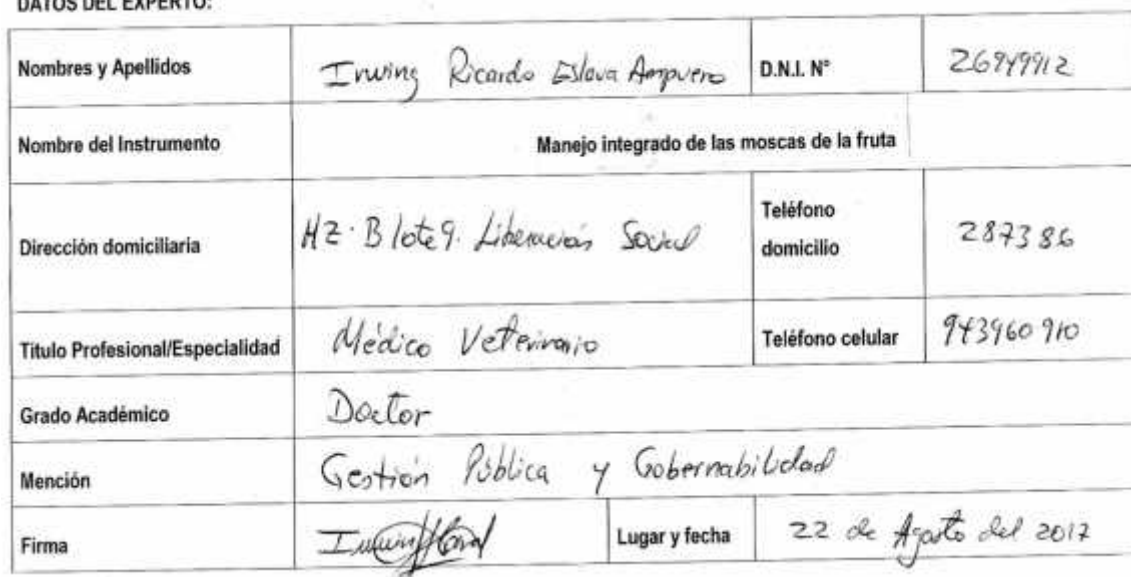 DATOS DEL EXPERTO:
Nombres y Apellidos Irwing Ricardo Eslava Ampuero D.N.I. N° 26949912
Nombre del Instrumento Manejo integrado de las moscas de la fruta
Dirección domiciliaria HZ. B lote 9. Liberación Social Teléfono domicilio 287386
Título Profesional/Especialidad Médico Veterinario Teléfono celular 943960910
Grado Académico Doctor
Mención Gestión Pública y Gobernabilidad
Firma Lugar y fecha 22 de Agosto del 2017